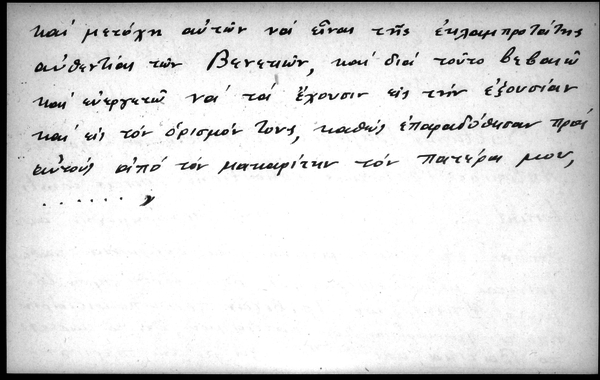 καί μετόχη αὐτῶν νά εἶναι τῆς ἐκλαμπροτάτης
αὐθεντίας τῶν Βενετιῶν, καί διά τοῦτο βεβαιῶ
καί εὐεργετῶ νά τά ἔχουσιν εἰς τήν ἐξουσίαν
καί εἰς τόν ὁρισμόν τους, καθώς ἐπαραδόθησαν πρός
αὐτούς ἀπό τόν μακαρίτην τόν πατέρα μου,
. . . . . . »